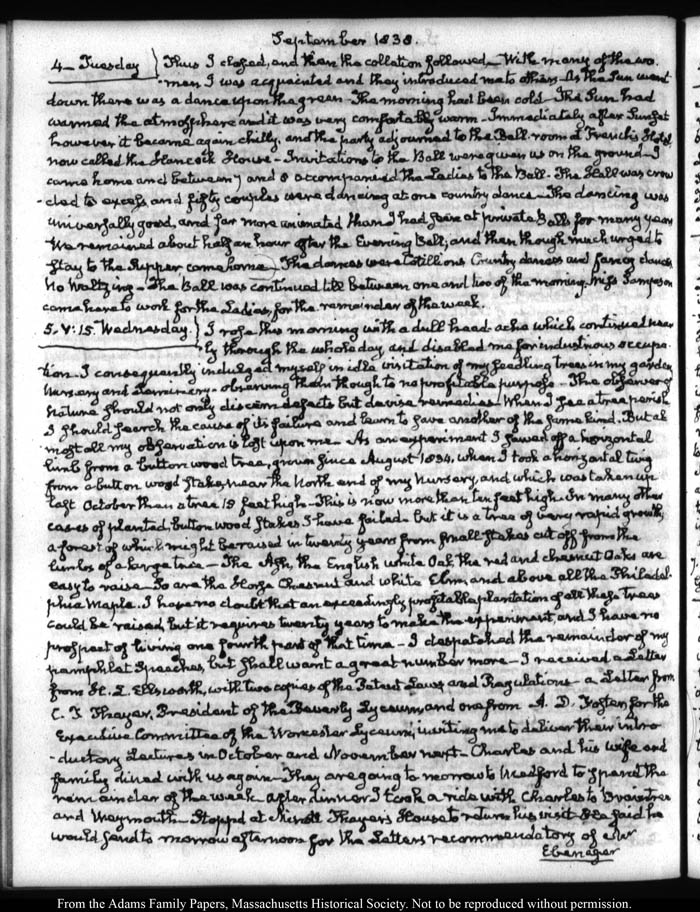 September 1838.
4- Tuesday } Thus I closed, and then the collation followed- With many of the wo-
-men I was acquainted and they introduced me to others- As the Sun went
down there was a dance upon the green- The morning had been cold- The Sun had
warmed the atmosphere and it was very comfortably warm- Immediately after Sunset
however it became again chilly, and the party adjourned to the Ball-room at French's Hotel
now called the Hancock House- Invitations to the Ball were given us on the ground- I
came home and between 7 and 8 accompanied the Ladies to the Ball- The Hall was crow
-ded to excess and fifty couples were dancing at one country dance- The dancing was
universally good, and far more animated than I had seen at private Balls for many years
We remained about half an hour after the Evening Bell, and then though much urged to
stay to the supper came home- The dances were totillions Country dances and fancy dances
No Waltzing- The Ball was continued till between one and two of the morning. Miss Sampson
came here to work for the Ladies, for the remainder of the week.
5. V: 15. Wednesday. } I rose this morning with a dull head-ache which continued near
ly through the whole day and disabled me for industrious occupa-
tion- I consequently indulged myself in idle visitation of my seedling trees in my garden
Nursery and Seminary- observing them though to no profitable purpose- The observer of
Nature should not only discern defects but devise remedies- When I see a tree perish
I should search the cause of its failure and learn to save another of the same kind. But al
most all my observation is lost upon me- As an experiment I sawed off a horizontal
limb from a button wood tree, grown since August 1834, when I took a horizontal twig
from a button wood stake, near the North end of my Nursery, and which was taken up
last October then a tree 19 feet high- This is now more than ten feet high. In many other
cases of planted, button wood stakes I have failed- but it is a tree of very rapid growth,
a forest of which might be raised in twenty years from small stakes cut off from the
limbs of a large tree- The Ash, the English white Oak the red and chesnut Oaks are
easy to raise- So are the Horse Chesnut and white Elm, and above all the Philadel-
phia Maple. I have no doubt that an exceedingly profitable plantation of all these trees
could be raised, but it requires twenty years to make the experiment, and I have no
prospect of living one fourth part of that time- I despatched the remainder of my
pamphlet speeches, but shall want a great number more- I received a Letter
from H. L. Ellsworth, with two copies of the Patent Laws and Regulations- a Letter from
C. T. Thayer, President of the Beverly Lyceum and one from A. D. Foster for the
Executive Committee of the Worcester Lyceum, inviting me to deliver their intro
-ductory Lectures in October and November next- Charles and his wife and
family dined with us again- They are going to morrow to Medford to spend the
remainder of the week- after dinner I took a ride with Charles to Braintree
and Weymouth- Stopped at Thayer's House to return his visit & he said he
would send to morrow afternoon for the Letters recommendatory of Mr
Ebenezer
From the Adams Family Papers, Massachusetts Historical Society. Not to be reproduced without permission.